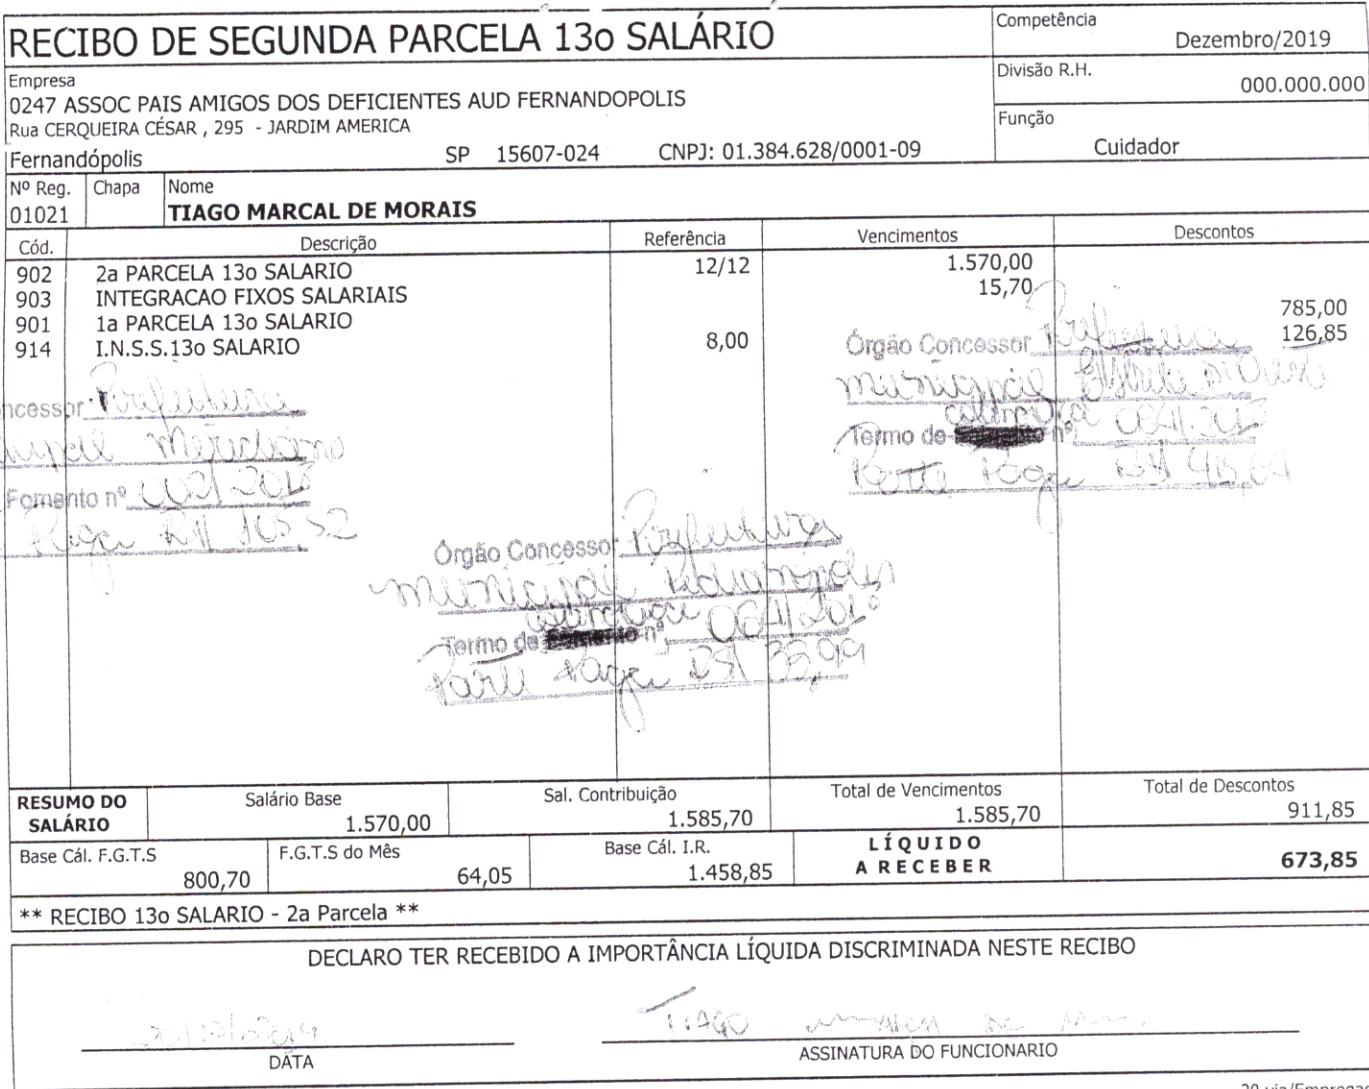 RECIBO DE SEGUNDA PARCELA 13o SALÁRIO
Competência
Dezembro/2019
Empresa
0247 ASSOC PAIS AMIGOS DOS DEFICIENTES AUD FERNANDOPOLIS
Rua CERQUEIRA CÉSAR , 295 - JARDIM AMERICA
Fernandópolis SP 15607-024 CNPJ: 01.384.628/0001-09
Divisão R.H.
000.000.000
Função
Cuidador
Nº Reg. Chapa Nome
01021 TIAGO MARCAL DE MORAIS
Cód. Descrição Referência Vencimentos Descontos
902 2a PARCELA 13o SALARIO 12/12 1.570,00
903 INTEGRACAO FIXOS SALARIAIS 15,70
901 1a PARCELA 13o SALARIO 785,00
914 I.N.S.S.13o SALARIO 8,00 126,85
Órgão Concessor Prefeitura
Municipal
Termo de nº
ncessor Prefeitura
Meridiano
Fomento nº
Órgão Concessor Prefeitura
Municipal
Termo de nº
RESUMO DO SALÁRIO
Salário Base
1.570,00
Sal. Contribuição
1.585,70
Total de Vencimentos
1.585,70
Total de Descontos
911,85
Base Cál. F.G.T.S
800,70
F.G.T.S do Mês
64,05
Base Cál. I.R.
1.458,85
LÍQUIDO
A RECEBER
673,85
** RECIBO 13o SALARIO - 2a Parcela **
DECLARO TER RECEBIDO A IMPORTÂNCIA LÍQUIDA DISCRIMINADA NESTE RECIBO
TIAGO
DATA
ASSINATURA DO FUNCIONARIO